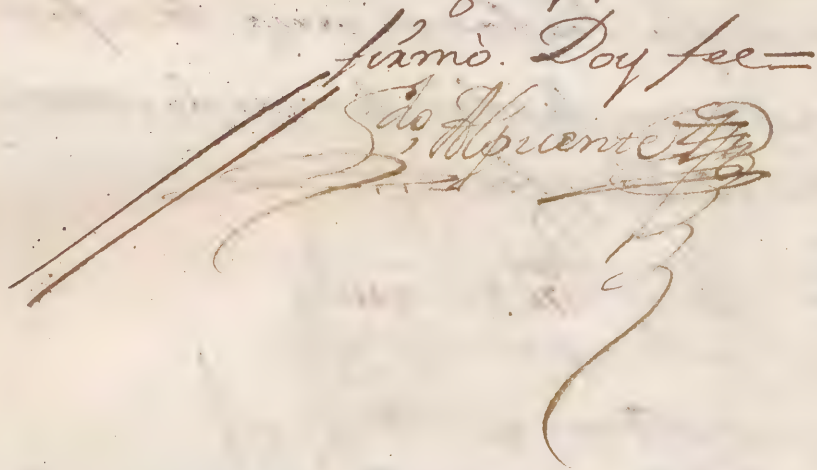 firmò. Doy fee=
do Alpuente